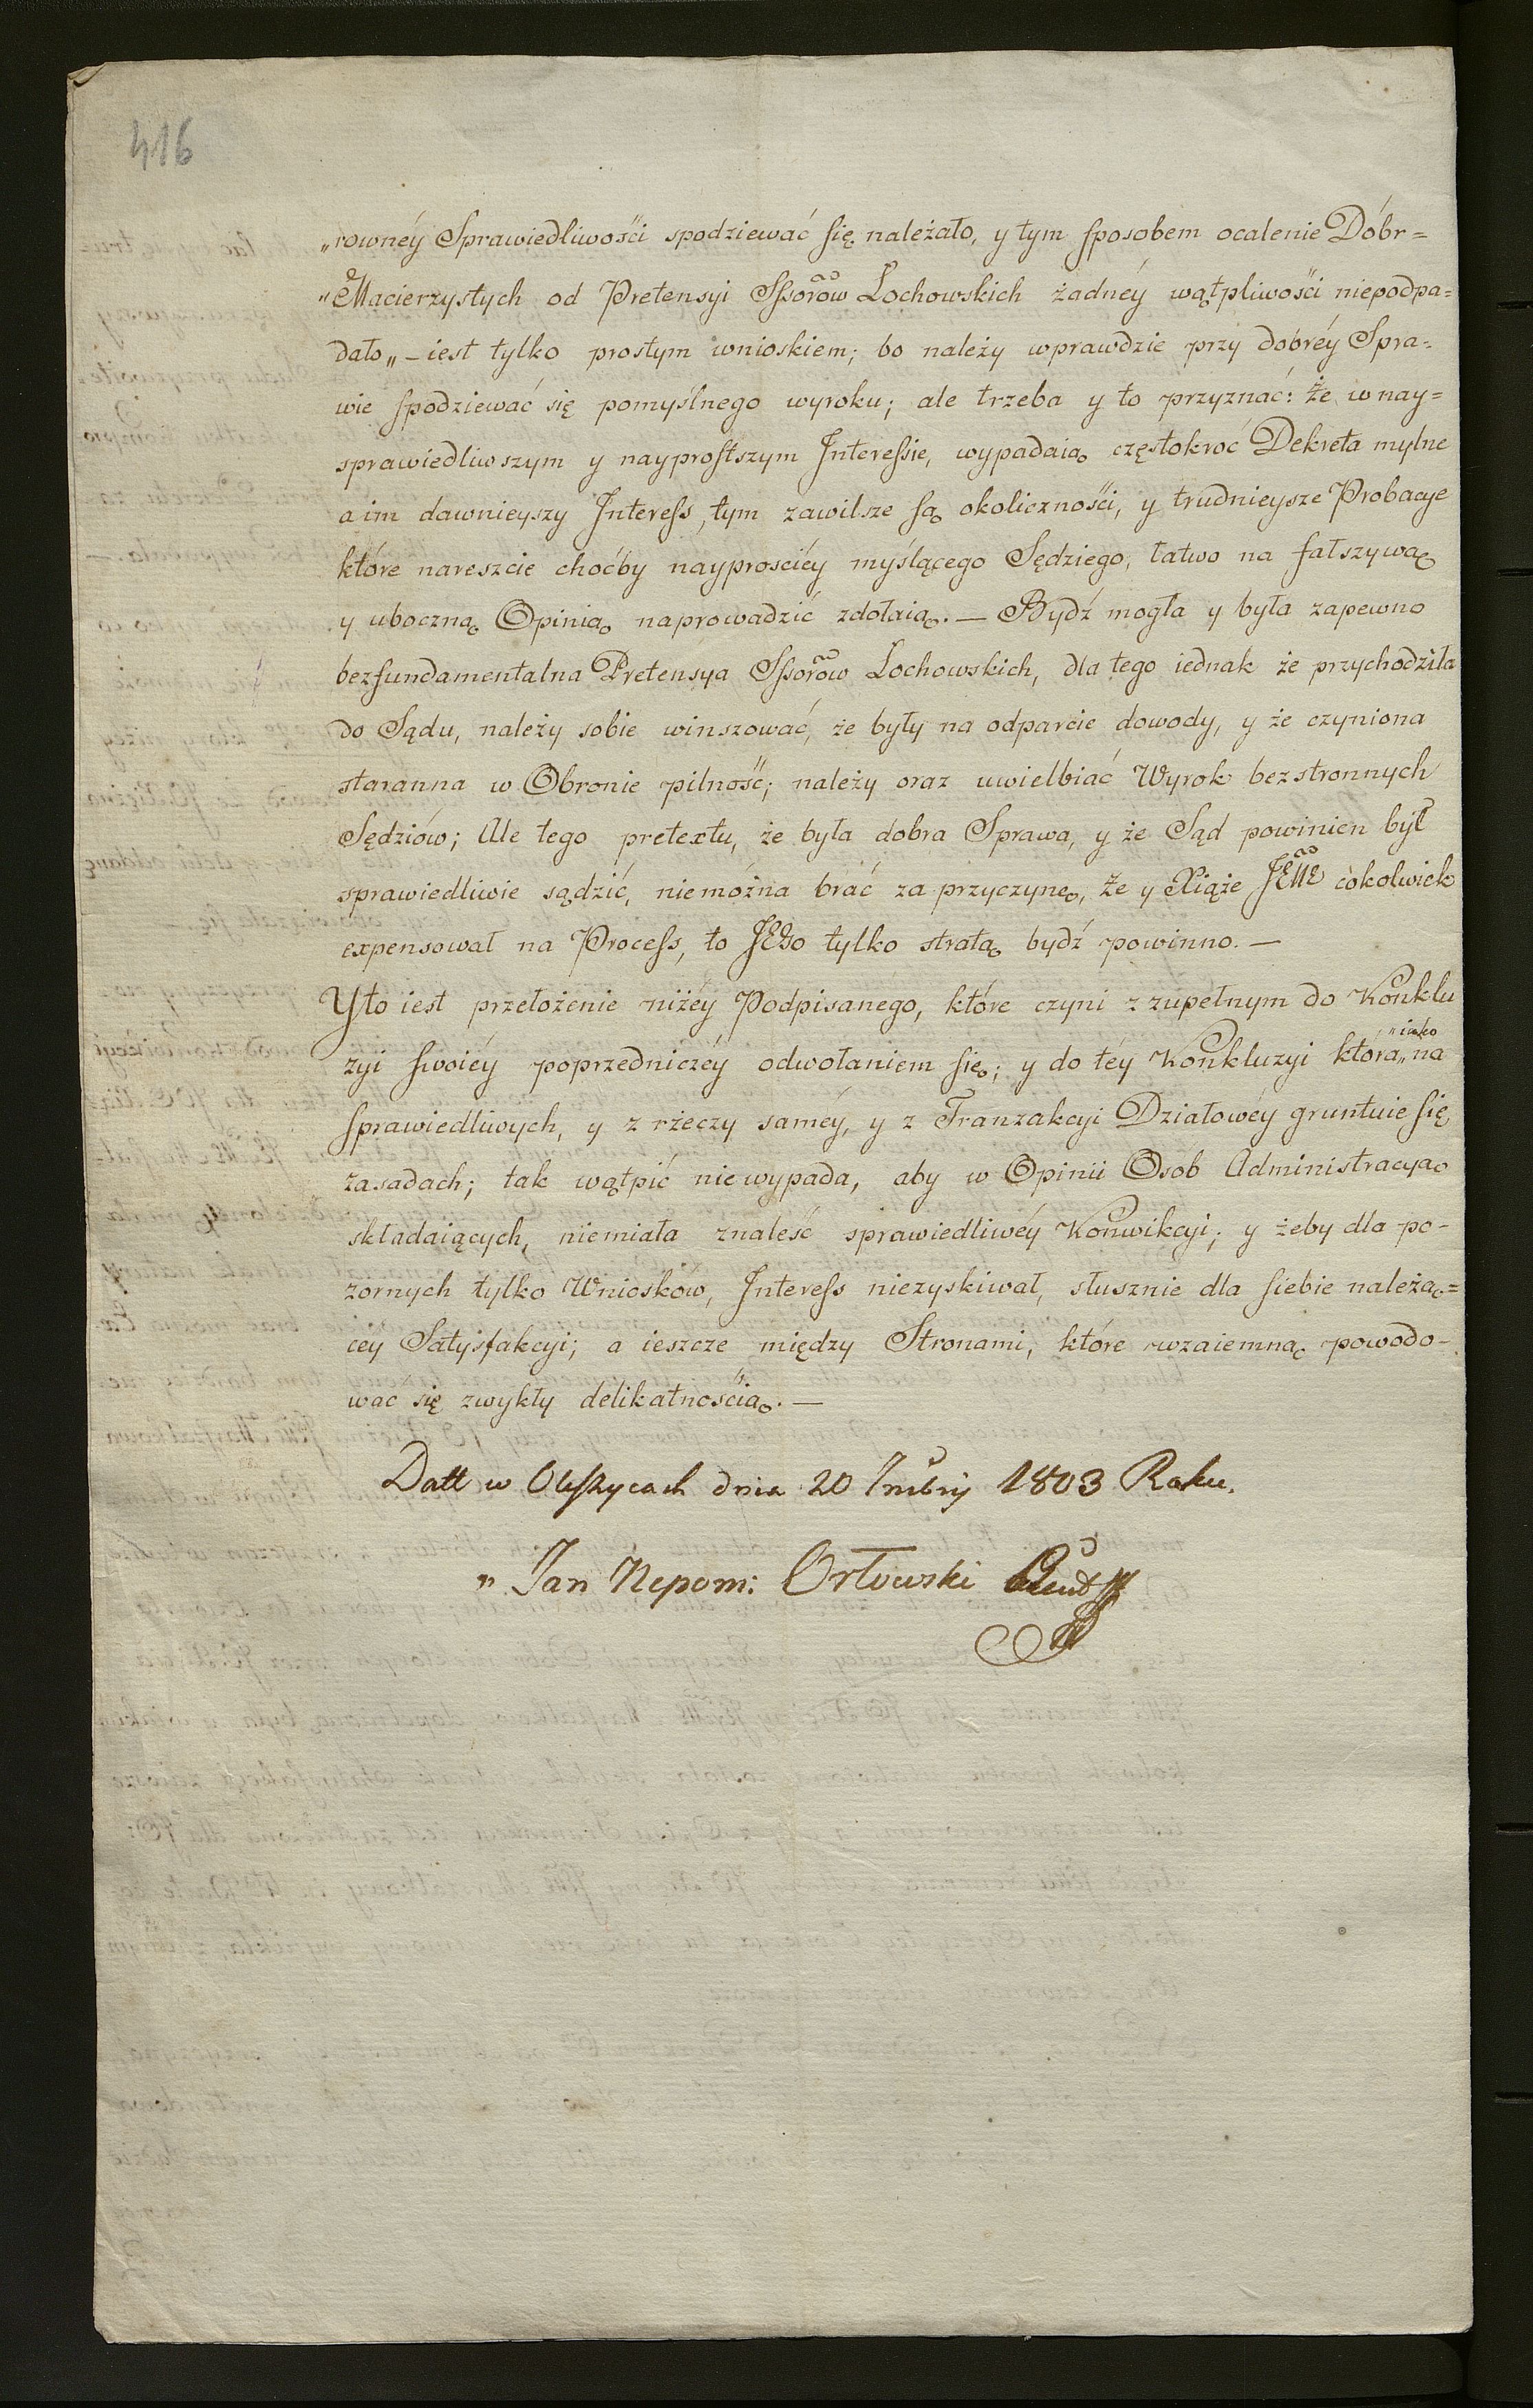 416
„rownéy Sprawiedliwości spodziewać się należało, y tym sposobem ocalenie Dóbr=
„Macierzystych od Pretensyi Sssorów Lochowskich żadnéy wątpliwości niepodpa=
dało„ – iest tylko prostym wnioskiem; bo należy wprawdzie przy dobréy Spra=
wie spodziewać się pomyślnego wyroku; ale trzeba y to przyznać: że w nay=
sprawiedliwszym y nayprostszym Interessie, wypadaią częstokroć Dekreta mylne
a im dawnieyszy Interess, tym zawilsze są okoliczności, y trudnieysze Probacye
które nareszcie choćby nayprościéy myślącego Sędziego, łatwo na fałszywą
y uboczną Opinią naprowadzić zdołaią. — Bydź mogła y była zapewno
bezfundamentalna Pretensya Sssorów Lochowskich, dla tego iednak że przychodziła
do Sądu, należy sobie winszować, że były na odparcie dowody, y że czyniona
staranna w Obronie pilność; należy oraz uwielbiać Wyrok bezstronnych
Sędziów; Ale tego pretextu, że była dobra Sprawa, y że Sąd powinien był
sprawiedliwie sądzić, niemożna brać za przyczynę, że y Xiąże JEMć cokolwiek
expensował na Process, to JEgo tylko stratą bydź powinno. —
Y to iest przełożenie niżéy Podpisanego, które czyni z zupełnym do Konklu
zyi swoiéy poprzedniczéy odwołaniem się; y do téy Konkluzyi która „iako„ na
sprawiedliwych, y z rżeczy saméy, y z Tranzakcyi Działowéy gruntuie się
zasadach; tak wątpić niewypada, aby w Opinii Osób Administracyą
składaiących, niemiała znaleść sprawiedliwéy Konwikcyi; y żeby dla po-
zornych tylko Wniosków, Interess niezyskiwał, słusznie dla siebie należą=
cey Satysfakcyi; a ieszcze między Stronami, które wzaiemną powodo-
wać się zwykły delikatnością. —
Datt w Oleszycach dnia 20 1803 Roku.
„ Jan Nepom: Orłowski